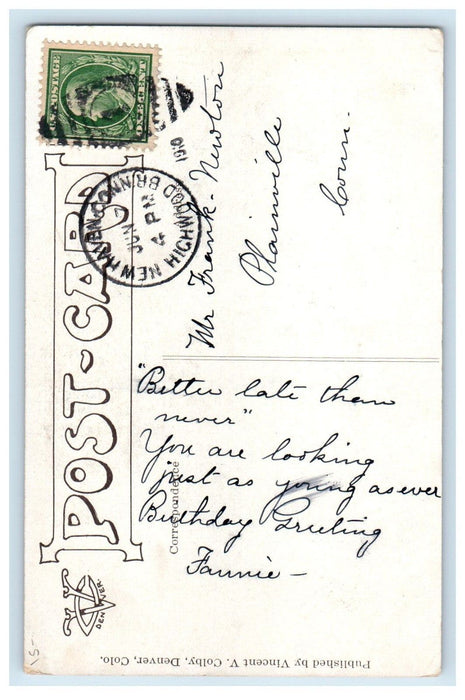 U.S. POSTAGE
ONE CENT
NEW HAVEN, CONN.
HIGHWOOD BR.
JUN 7
4 PM
1910
POST-CARD
Mr Frank Newton
Plainville
Conn.
"Better late than
never"
You are looking
just as young as ever
Birthday Greeting
Fannie –
Correspondence
DENVER
Published by Vincent V. Colby, Denver, Colo.